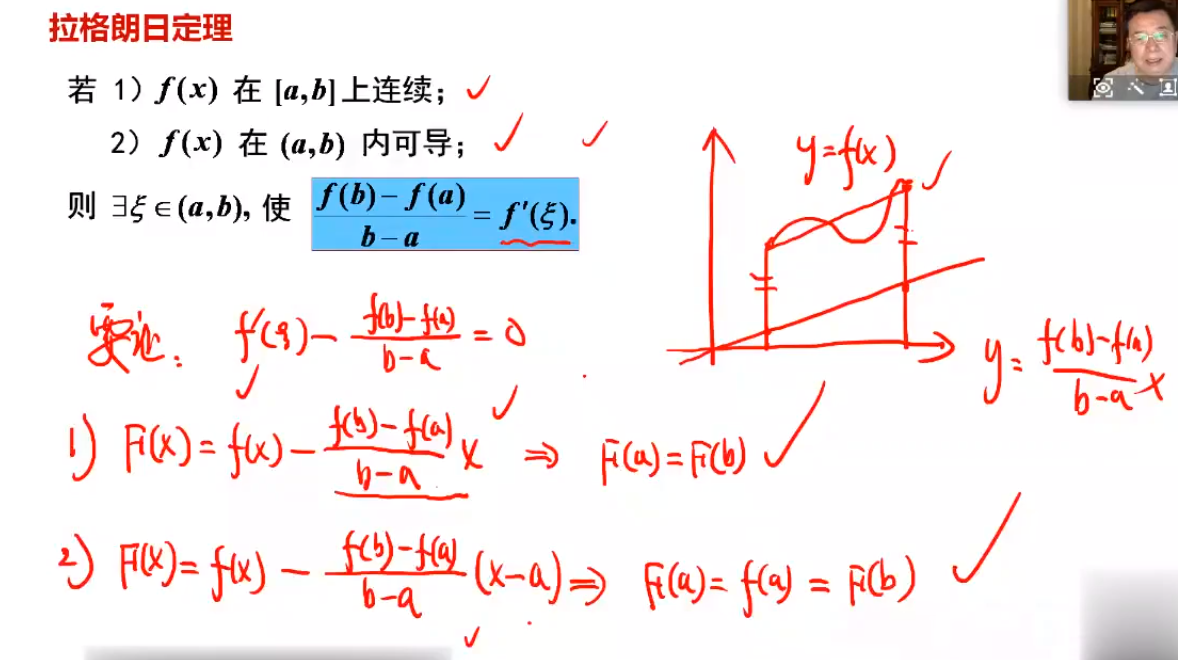 拉格朗日定理
若 1) f(x) 在 [a,b]上连续;
2) f(x) 在 (a,b) 内可导;
则 ∃ξ∈(a,b), 使 \frac{f(b)-f(a)}{b-a} = f'(ξ).
y=f(x)
要证: f'(ξ) - \frac{f(b)-f(a)}{b-a} = 0
y = \frac{f(b)-f(a)}{b-a} x
1) F(x) = f(x) - \frac{f(b)-f(a)}{b-a} x ⇒ F(a) = F(b)
2) F(x) = f(x) - \frac{f(b)-f(a)}{b-a} (x-a) ⇒ F(a) = f(a) = F(b)